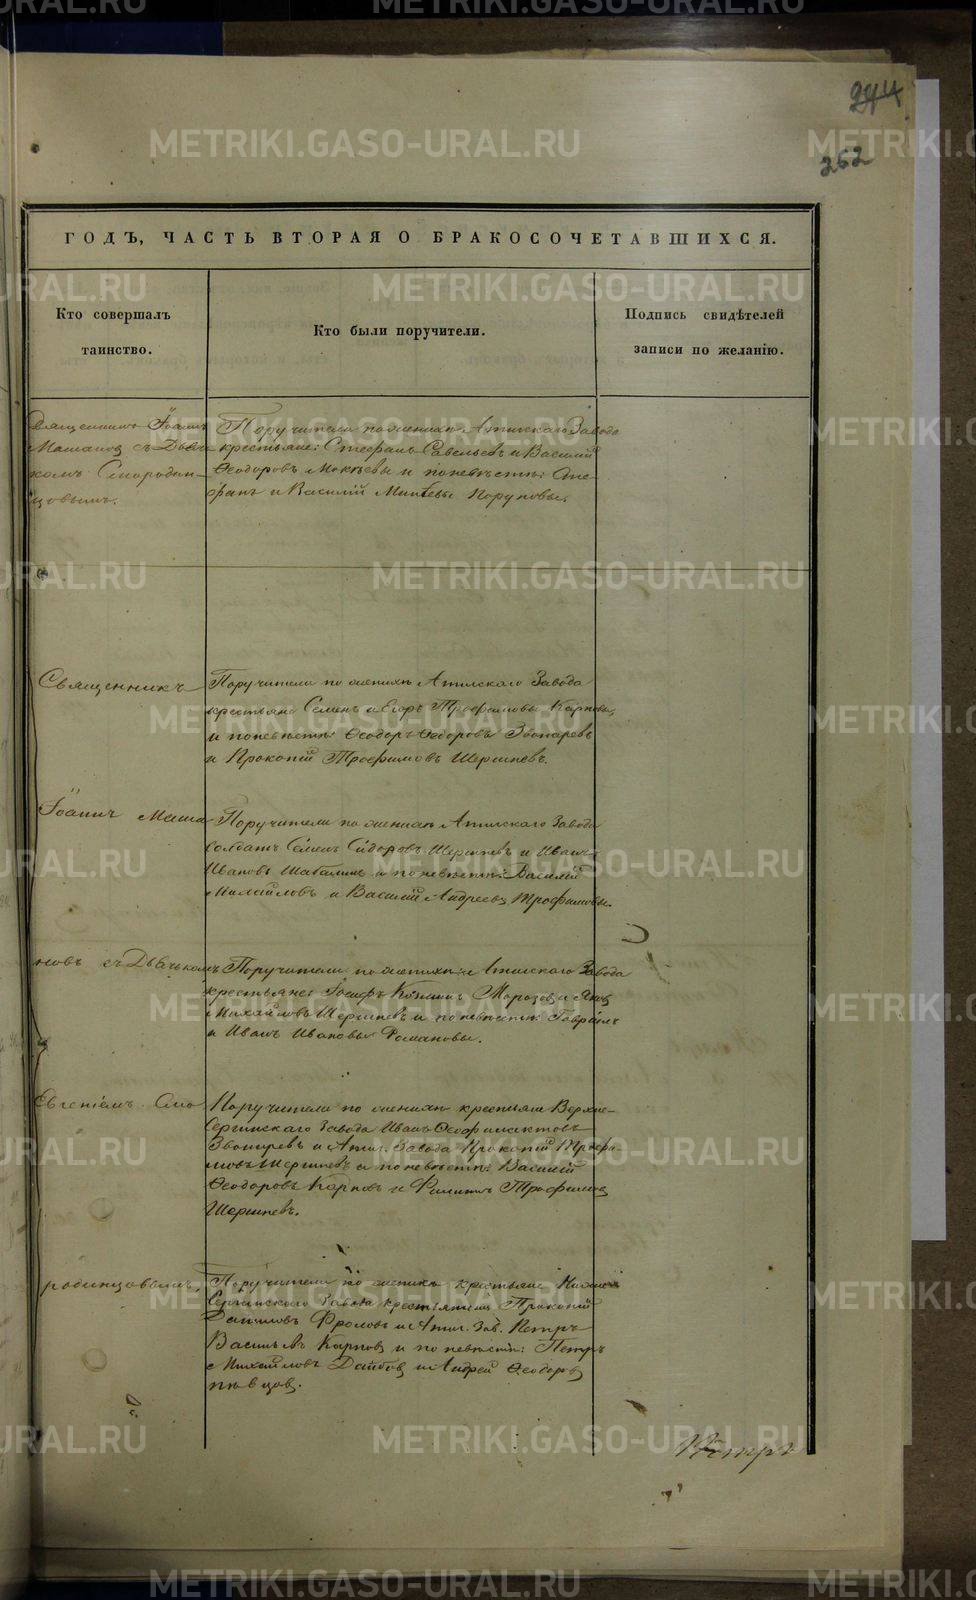 244
262
ГОДЪ, ЧАСТЬ ВТОРАЯ О БРАКОСОЧЕТАВШИХСЯ.
Кто совершалъ
таинство.
Кто были поручители.
Подпись свидѣтелей
записи по желанію.
Священникъ Іоаннъ
Машановъ съ Дьяч-
комъ Смородин-
цовымъ.
Поручители по женихѣ Атигскаго Завода
крестьяне: Стефанъ Савельевъ и Василій
Ѳеодоровъ и по невѣстѣ: Сте-
фанъ и Василій
Священникъ
Поручители по женихѣ Атигскаго Завода
крестьяне Семенъ и Егоръ Трофимовы Карповы,
и по невѣстѣ: Ѳеодоръ Ѳедоровъ Звонаревъ
и Прокопій Трофимовъ Шершневъ.
Іоаннъ Маша
Поручители по женихѣ Атигскаго Завода
солдатъ Семенъ Сидоровъ Шершневъ и Иванъ
Ивановъ Шабалинъ и по невѣстѣ: Василій
Михайловъ и Василій Андреевъ Трофимовы.
новъ съ Дьячькомъ
Поручители по женихѣ Атигскаго Завода
крестьяне Іосифъ Морозовъ и Яковъ
Михайловъ Шершневъ и по невѣстѣ: Гавріилъ
и Иванъ Ивановы Романовы.
Евгеніемъ Смо
Поручители по женихѣ крестьяне Верхне-
Сергинскаго Завода Иванъ Ѳеофилактовъ
Звонаревъ и Атиг. Завода Прокопій Трофи-
мовъ Шершневъ и по невѣстѣ: Василій
Ѳеодоровъ Карповъ и Филиппъ Трофимовъ
Шершневъ.
родинцовымъ.
Поручители по женихѣ крестьяне Нижне
Сергинскаго Завода крестьянинъ Прокопій
Даниловъ Фроловъ и Атиг. Зав. Петръ
Васильевъ Карповъ и по невѣстѣ: Петръ
Михайловъ и Андрей Ѳеодоровъ
пѣвцов.
Петръ
METRIKI.GASO-URAL.RU